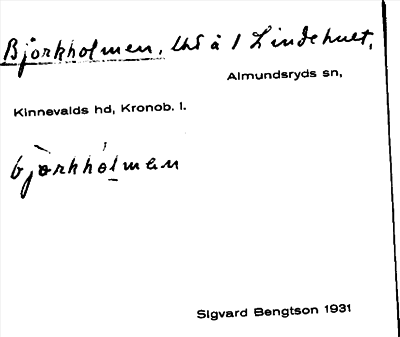 Björkholmen, lht å 1 Lindehult,
Almundsryds sn,
Kinnevalds hd, Kronob. l.
bjö̀rkhólmen
Sigvard Bengtson 1931